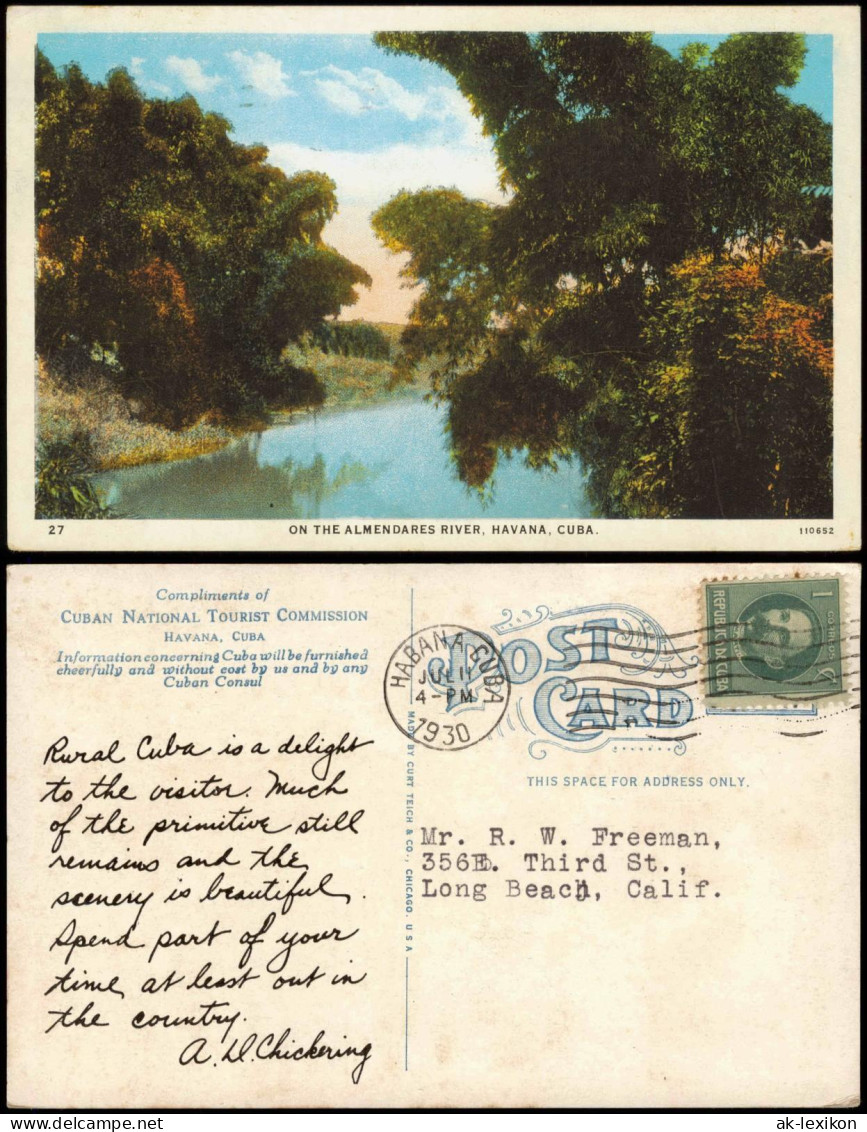 27
ON THE ALMENDARES RIVER, HAVANA, CUBA.
110652
Compliments of
CUBAN NATIONAL TOURIST COMMISSION
HAVANA, CUBA
Information concerning Cuba will be furnished
cheerfully and without cost by us and by any
Cuban Consul
Rural Cuba is a delight
to the visitor. Much
of the primitive still
remains and the
scenery is beautiful.
Spend part of your
time at least out in
the country.
A. D. Chickering
MADE BY CURT TEICH & CO., CHICAGO, U S A
POST
CARD
HABANA CUBA
JUL 11
4- PM
1930
REPUBLICA DE CUBA
1
THIS SPACE FOR ADDRESS ONLY.
Mr. R. W. Freeman,
356E. Third St.,
Long Beach, Calif.
ak-lexikon